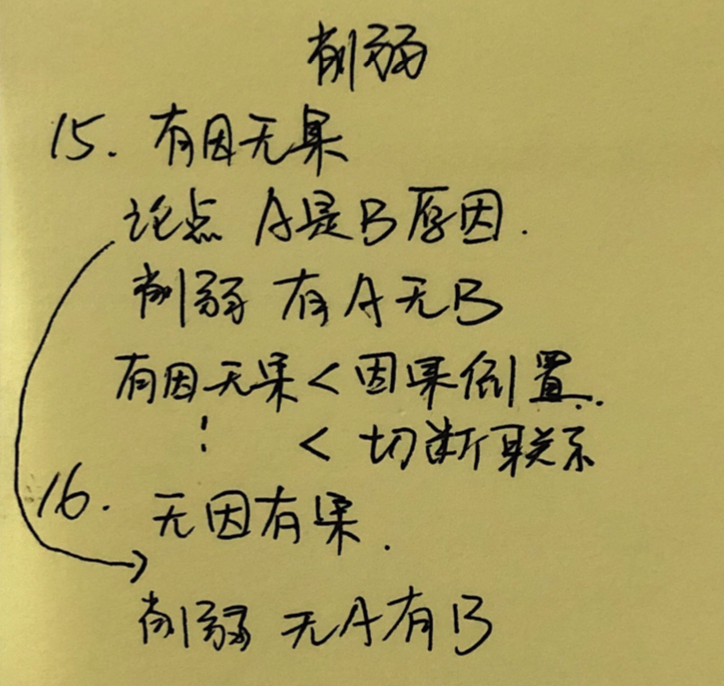 削弱
15. 有因无果
论点 A是B原因.
削弱 有A无B
有因无果 < 因果倒置.
< 切断联系
16. 无因有果.
削弱 无A有B